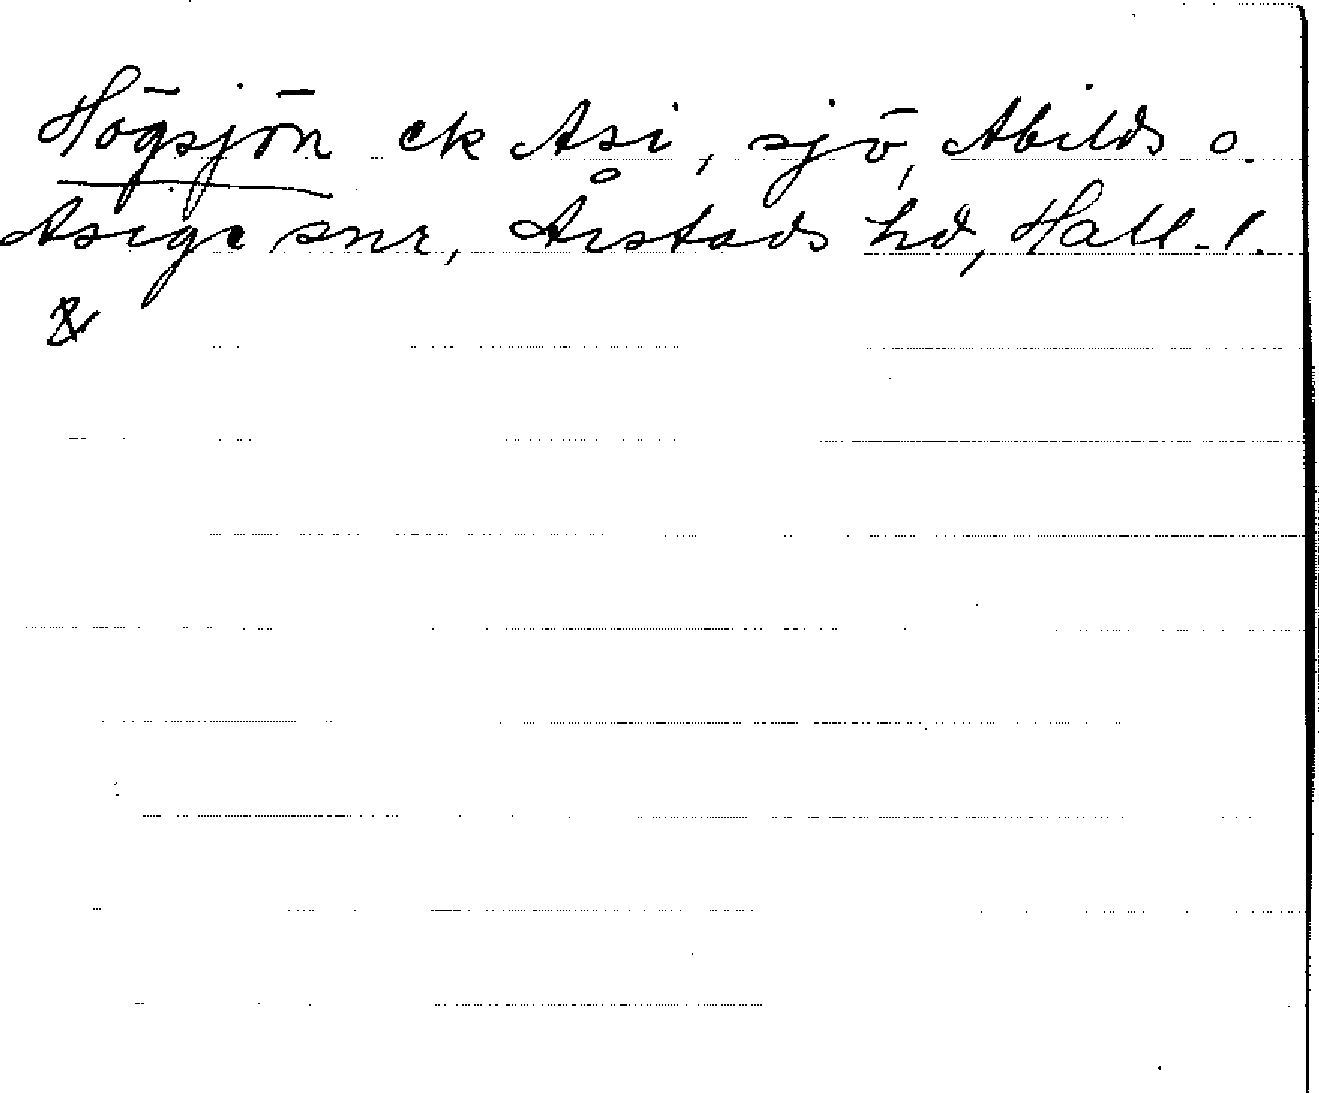 Högsjön ek Asi, sjö, Abilds o.
Asige snr, Årstads hd, Hall. l.
&